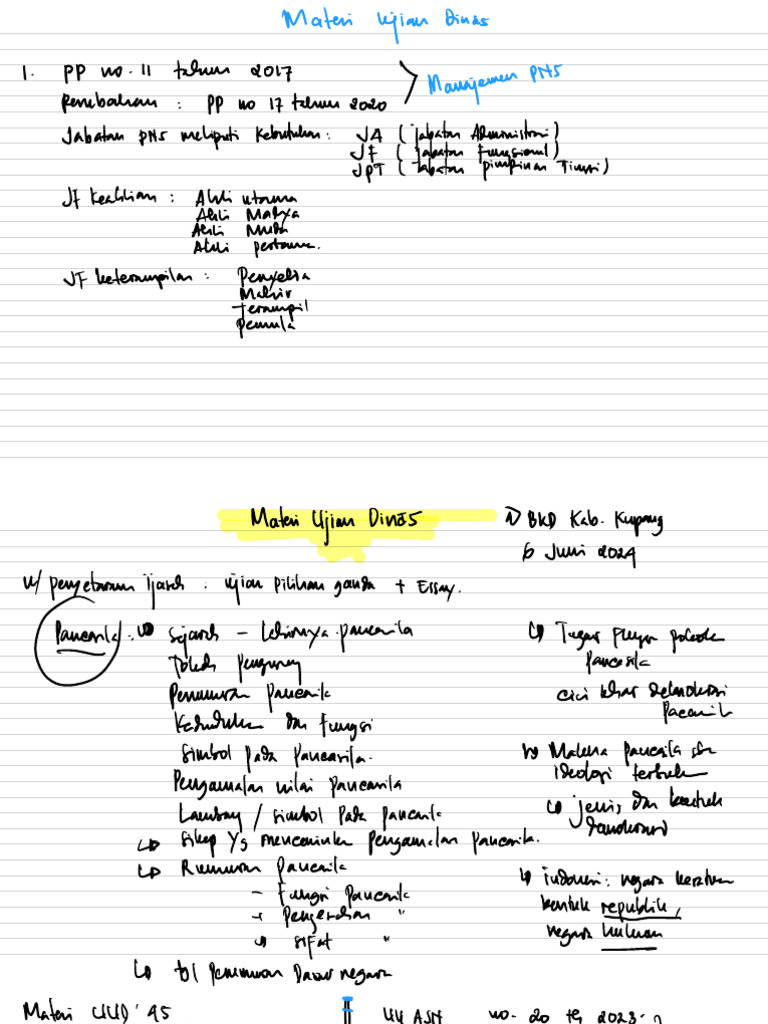 Materi Ujian Dinas
1. PP no. 11 tahun 2017
Perubahan : PP no 17 tahun 2020
Manajemen PNS
Jabatan PNS meliputi Kebutuhan : JA (Jabatan Administrasi)
JF (Jabatan Fungsional)
JPT (Jabatan pimpinan Tinggi)
JF Keahlian : Ahli utama
Ahli Madya
Ahli Muda
Ahli pertama.
JF keterampilan : Penyelia
Mahir
Terampil
Pemula
Materi Ujian Dinas
BKD Kab. Kupang
6 Juni 2024
u/ penyetaraan Ijasah : ujian pilihan ganda + Essay.
Pancasila : Sejarah - Lahirnya pancasila
Tokoh pengusung
Perumusan Pancasila
Kedudukan dan Fungsi
Simbol pada Pancasila.
Pengamalan nilai Pancasila
Lambang / simbol pada pancasila
Sikap yg mencerminkan Pengamalan Pancasila.
Rumusan Pancasila
- Fungsi Pancasila
Pengertian "
Sifat "
Perumusan Dasar negara
Tugas pokok
Pancasila
ciri khas demokrasi
Pancasila
Makna pancasila sbg
ideologi terbuka
jenis dan bentuk
demokrasi
indonesia : negara kesatuan
bentuk republik,
negara hukum
Materi UUD '45
UU ASN no. 20 th 2023